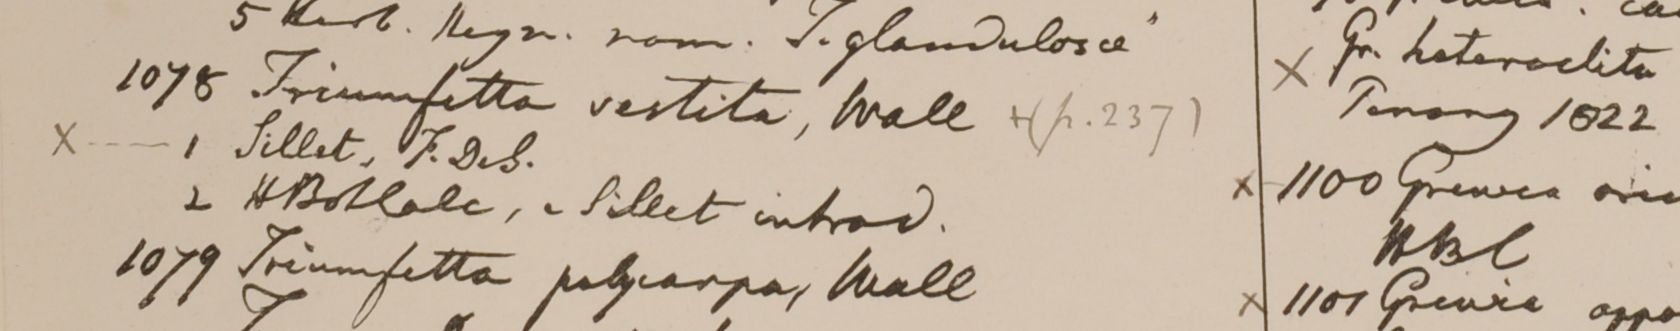 5 Herb. Heyn. nom. "T. glandulosa"
1078 Triumfetta vestita, Wall +(p. 237)
X 1 Sillet, F. De S.
2 HBot Calc, e Sillet introd.
1079 Triumfetta polycarpa, Wall
X Gr. heteroclita
Penang 1822
x 1100 Grewia
HBC
x 1101 Grewia